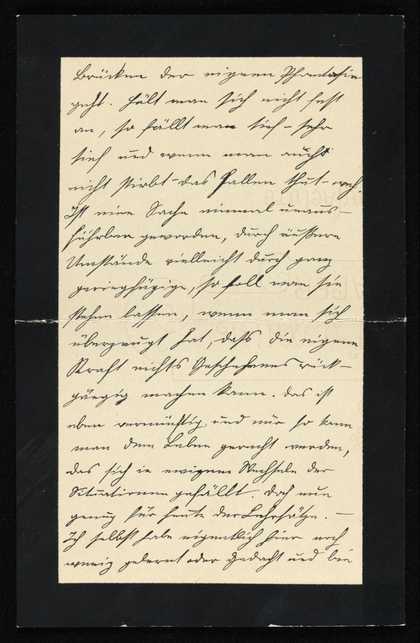 Brücken der eigenen Phantasie
geht. Hält man sich nicht fest
an, so fällt man tief – sehr
tief und wenn man auch
nicht stirbt – das Fallen thut weh.
Ist eine Sache einmal unaus-
führbar geworden, durch äußere
Umstände vielleicht durch ganz
geringfügige, so soll man sie
stehen lassen, wenn man sich
überzeugt hat, daß die eigene
Kraft nichts Geschehenes rück-
gängig machen kann. Das ist
eben vernünftig und nur so kann
man dem Leben gerecht werden,
das sich in ewigem Wechseln der
Situationen gefällt. Doch nun
genug für heute der Lehrsätze. –
Ich selbst habe eigentlich hier noch
wenig gelernt oder gedacht und bin